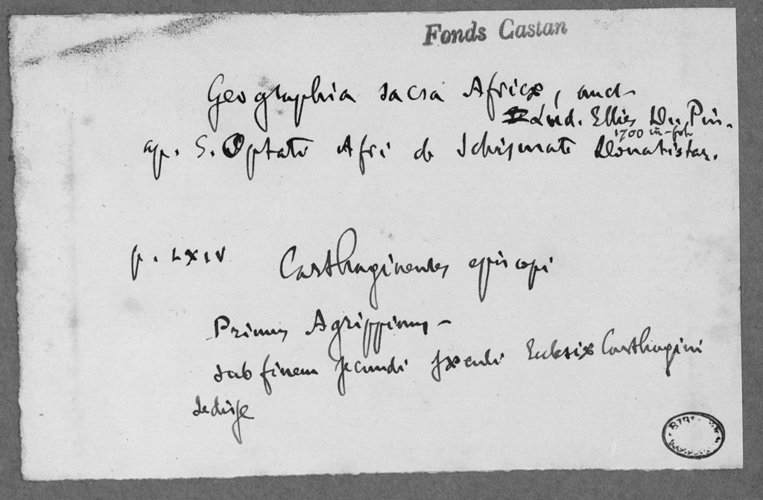 Fonds Castan
Geographia sacra Africæ, auct.
Lud. Ellies Du Pin.
1700 in-fol.
ap. S. Optati Afri de Schismate Donatistar.
p. LXIV Carthaginenses episcopi
Primus Agrippinus
sub finem secundi sæculi Ecclesiæ Carthagini
sedisse